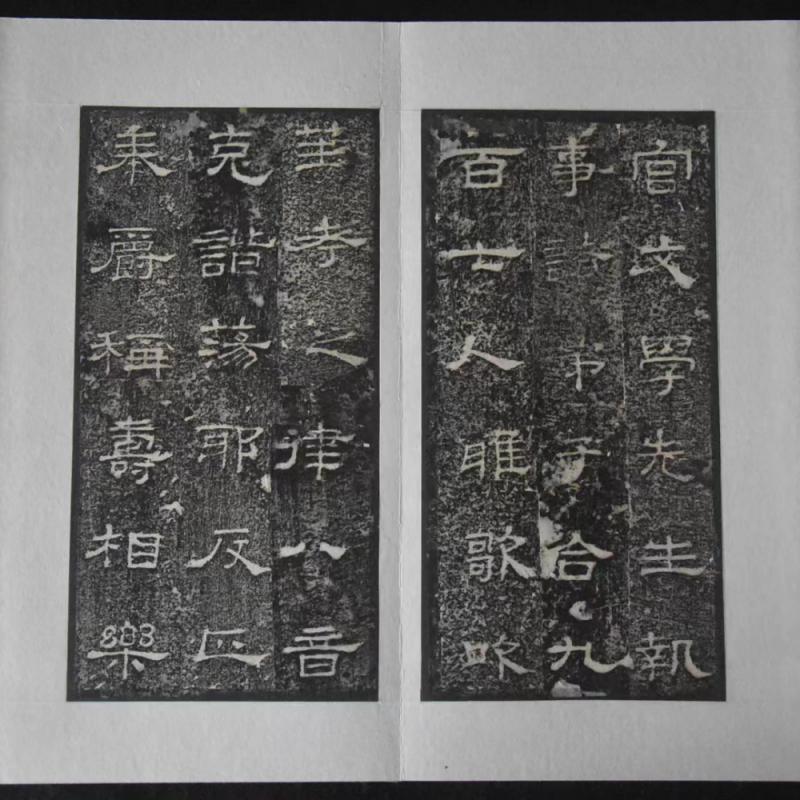 官文學先生執
事諸弟子合九
百七人雅歌吹
笙考之律八音
克諧蕩邪反正
奉爵稱壽相樂